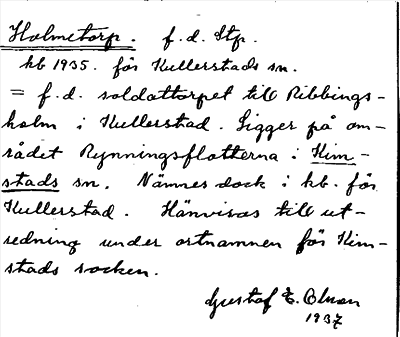 Holmetorp. f.d. Stp.
hb 1935. för Kullerstads sn.
= f.d. soldattorpet till Ribbings-
holm i Kullerstad. Ligger på om-
rådet Rynningsflotterna i Kim-
stads sn. Nämnes dock i hb. för
Kullerstad. Hänvisas till ut-
redning under ortnamnen för Kim-
stads socken.
Gustaf E. Olson
1937